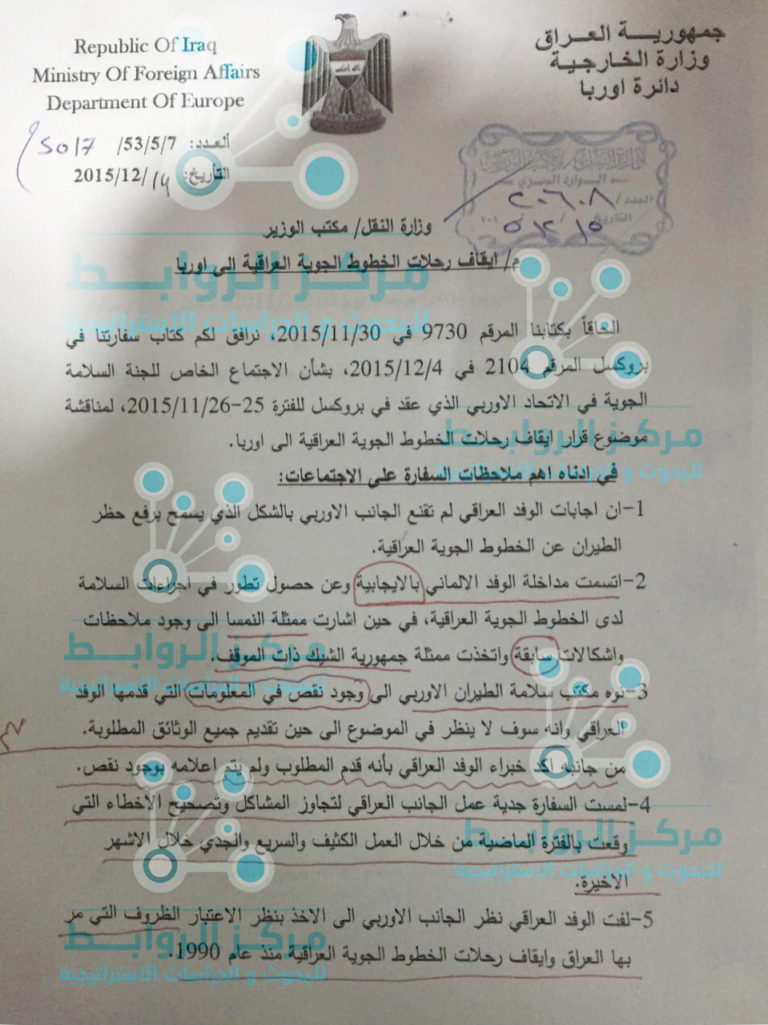 Republic Of Iraq
Ministry Of Foreign Affairs
Department Of Europe
جمهورية العراق
وزارة الخارجية
دائرة اوربا
العدد: 53/5/7/ 5017
التأريخ: 2015/12/14
الوارد
العدد / ٢٠٦٠٨
التاريخ
وزارة النقل/ مكتب الوزير
م/ ايقاف رحلات الخطوط الجوية العراقية الى اوربا
الحاقاً بكتابنا المرقم 9730 في 2015/11/30، نرافق لكم كتاب سفارتنا في
بروكسل المرقم 2104 في 2015/12/4، بشأن الاجتماع الخاص للجنة السلامة
الجوية في الاتحاد الاوربي الذي عقد في بروكسل للفترة 25-2015/11/26، لمناقشة
موضوع قرار ايقاف رحلات الخطوط الجوية العراقية الى اوربا.
في ادناه اهم ملاحظات السفارة على الاجتماعات:
1-ان اجابات الوفد العراقي لم تقنع الجانب الاوربي بالشكل الذي يسمح برفع حظر
الطيران عن الخطوط الجوية العراقية.
2-اتسمت مداخلة الوفد الالماني بالايجابية وعن حصول تطور في اجراءات السلامة
لدى الخطوط الجوية العراقية، في حين اشارت ممثلة النمسا الى وجود ملاحظات
واشكالات سابقة واتخذت ممثلة جمهورية الشيك ذات الموقف.
3-نوه مكتب سلامة الطيران الاوربي الى وجود نقص في المعلومات التي قدمها الوفد
العراقي وانه سوف لا ينظر في الموضوع الى حين تقديم جميع الوثائق المطلوبة.
من جانبه اكد خبراء الوفد العراقي بأنه قدم المطلوب ولم يتم اعلامه بوجود نقص.
4-لمست السفارة جدية عمل الجانب العراقي لتجاوز المشاكل وتصحيح الاخطاء التي
وقعت بالفترة الماضية من خلال العمل الكثيف والسريع والجدي خلال الاشهر
الاخيرة.
5-لفت الوفد العراقي نظر الجانب الاوربي الى الاخذ بنظر الاعتبار الظروف التي مر
بها العراق وايقاف رحلات الخطوط الجوية العراقية منذ عام 1990.
مركز الروابط
للبحوث و الدراسات الاستراتيجية
مركز الروابط
للبحوث و الدراسات الاستراتيجية
مركز الروابط
للبحوث و الدراسات الاستراتيجية
مركز الروابط
للبحوث و الدراسات الاستراتيجية
مركز الروابط
للبحوث و الدراسات الاستراتيجية